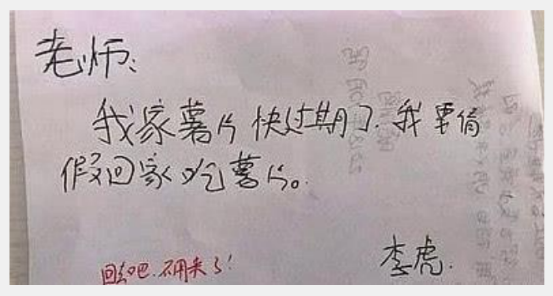 老师:
我家薯片快过期了.我要请
假回家吃薯片。
回去吧.不用来了!
李虎.